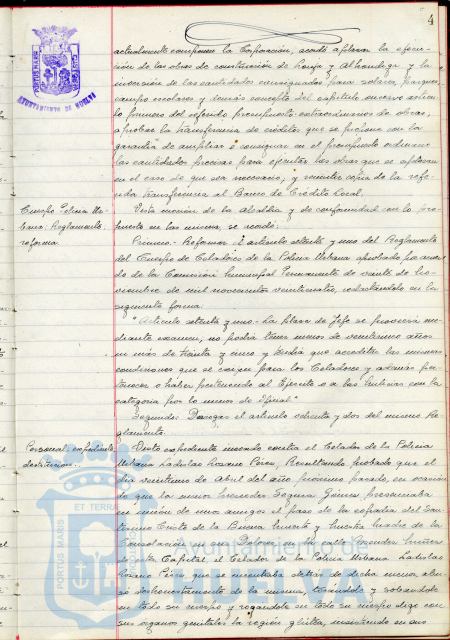 4
PORTUS MARIS
AYUNTAMIENTO DE HUELVA
actualmente componen la Corporación, acordó aplazar la ejecu-
ción de las obras de construcción de Lonja y Alhondiga y la
inversión de las cantidades consignadas para solares, parques,
campo escolares y demás concepto del capitulo onceavo articu-
lo primero del referido presupuesto extraordinario de obras,
aprobar la transferencia de créditos que se precise con la
garantía de ampliar o consignar en el presupuesto ordinario
las cantidades precisas para ejecutar las obras que se aplazan
en el caso de que sea necesario, y remitir copia de la refe-
rida transferencia al Banco de Crédito Local.
Cuerpo Policia Ur-
bana: Reglamento
reforma.
Vista moción de la Alcaldia y de conformidad con lo pro-
puesto en la misma, se acordó:
Primero.- Reformar el articulo setenta y uno del Reglamento
del Cuerpo de Celadores de la Policia Urbana aprobado por acuer-
do de la Comisión Municipal Permanente de veinte de No-
viembre de mil novecientos veinticuatro, redactándolo en la
siguiente forma:
"Articulo setenta y uno.- La plaza de Jefe se proveerá me-
diante examen, no podrá tener menos de veinticinco años
ni más de treinta y cinco y tendrá que acreditar las mismas
condiciones que se exijan para los Celadores y además per-
tenecer o haber pertenecido al Ejército o a las Milicias con la
categoria por lo menos de Oficial"
Segundo: Derogar el articulo ochenta y dos del mismo Re-
glamento.
Personal: expediente
destitución.
Visto expediente incoado contra el Celador de la Policia
Urbana Ladislao Lozano Pérez, Resultando probado que el
dia veintiuno de Abril del año proximo pasado, en ocasión
de que la menor Mercedes Segura Gómez presenciaba
en unión de unos amigos el paso de la cofradia del San-
tisimo Cristo de la Buena Muerte y Nuestra Madre de la
Consolación en sus Dolores en la calle
de esta Capital, el Celador de la Policia Urbana Ladislao
Lozano Pérez que se encontraba detrás de dicha menor abu-
só deshonestamente de la misma, tocándole y sobándole
en todo su cuerpo y rozándole en todo su cuerpo digo con
sus órganos genitales la región glútea, insistiendo en sus
ET TERRA
PORTUS MARIS
Ayuntamiento de
HUELVA